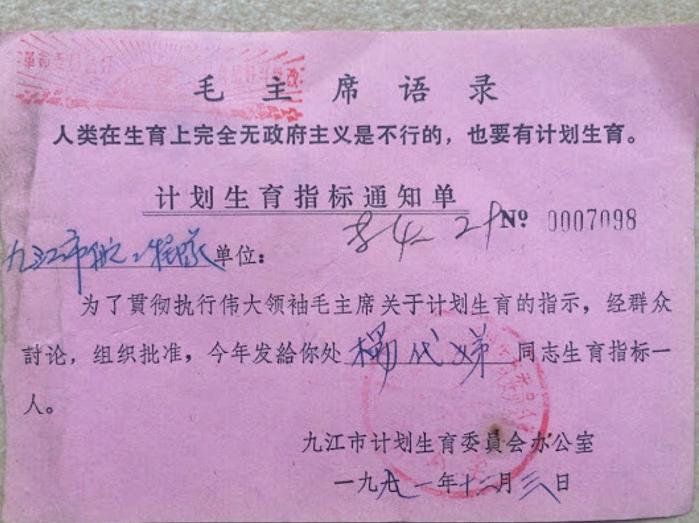 毛主席语录
人类在生育上完全无政府主义是不行的，也要有计划生育。
计划生育指标通知单
№ 0007098
九江市航工程队单位：
为了貫彻执行伟大领袖毛主席关于计划生育的指示，经群众
討论，组织批准，今年发給你处杨代娣同志生育指标一
人。
九江市计划生育委員会办公室
一九七一年十二月三日